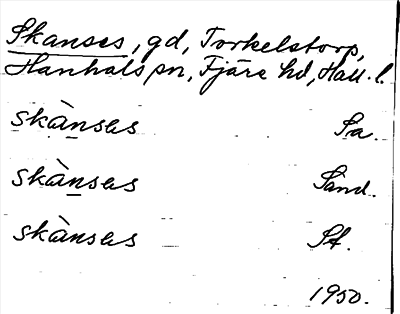 Skanses, gd, Torkelstorp,
Hanhals sn, Fjäre hd, Hall. l.
skànses Sa.
skànses Sand.
skànses St.
1950.